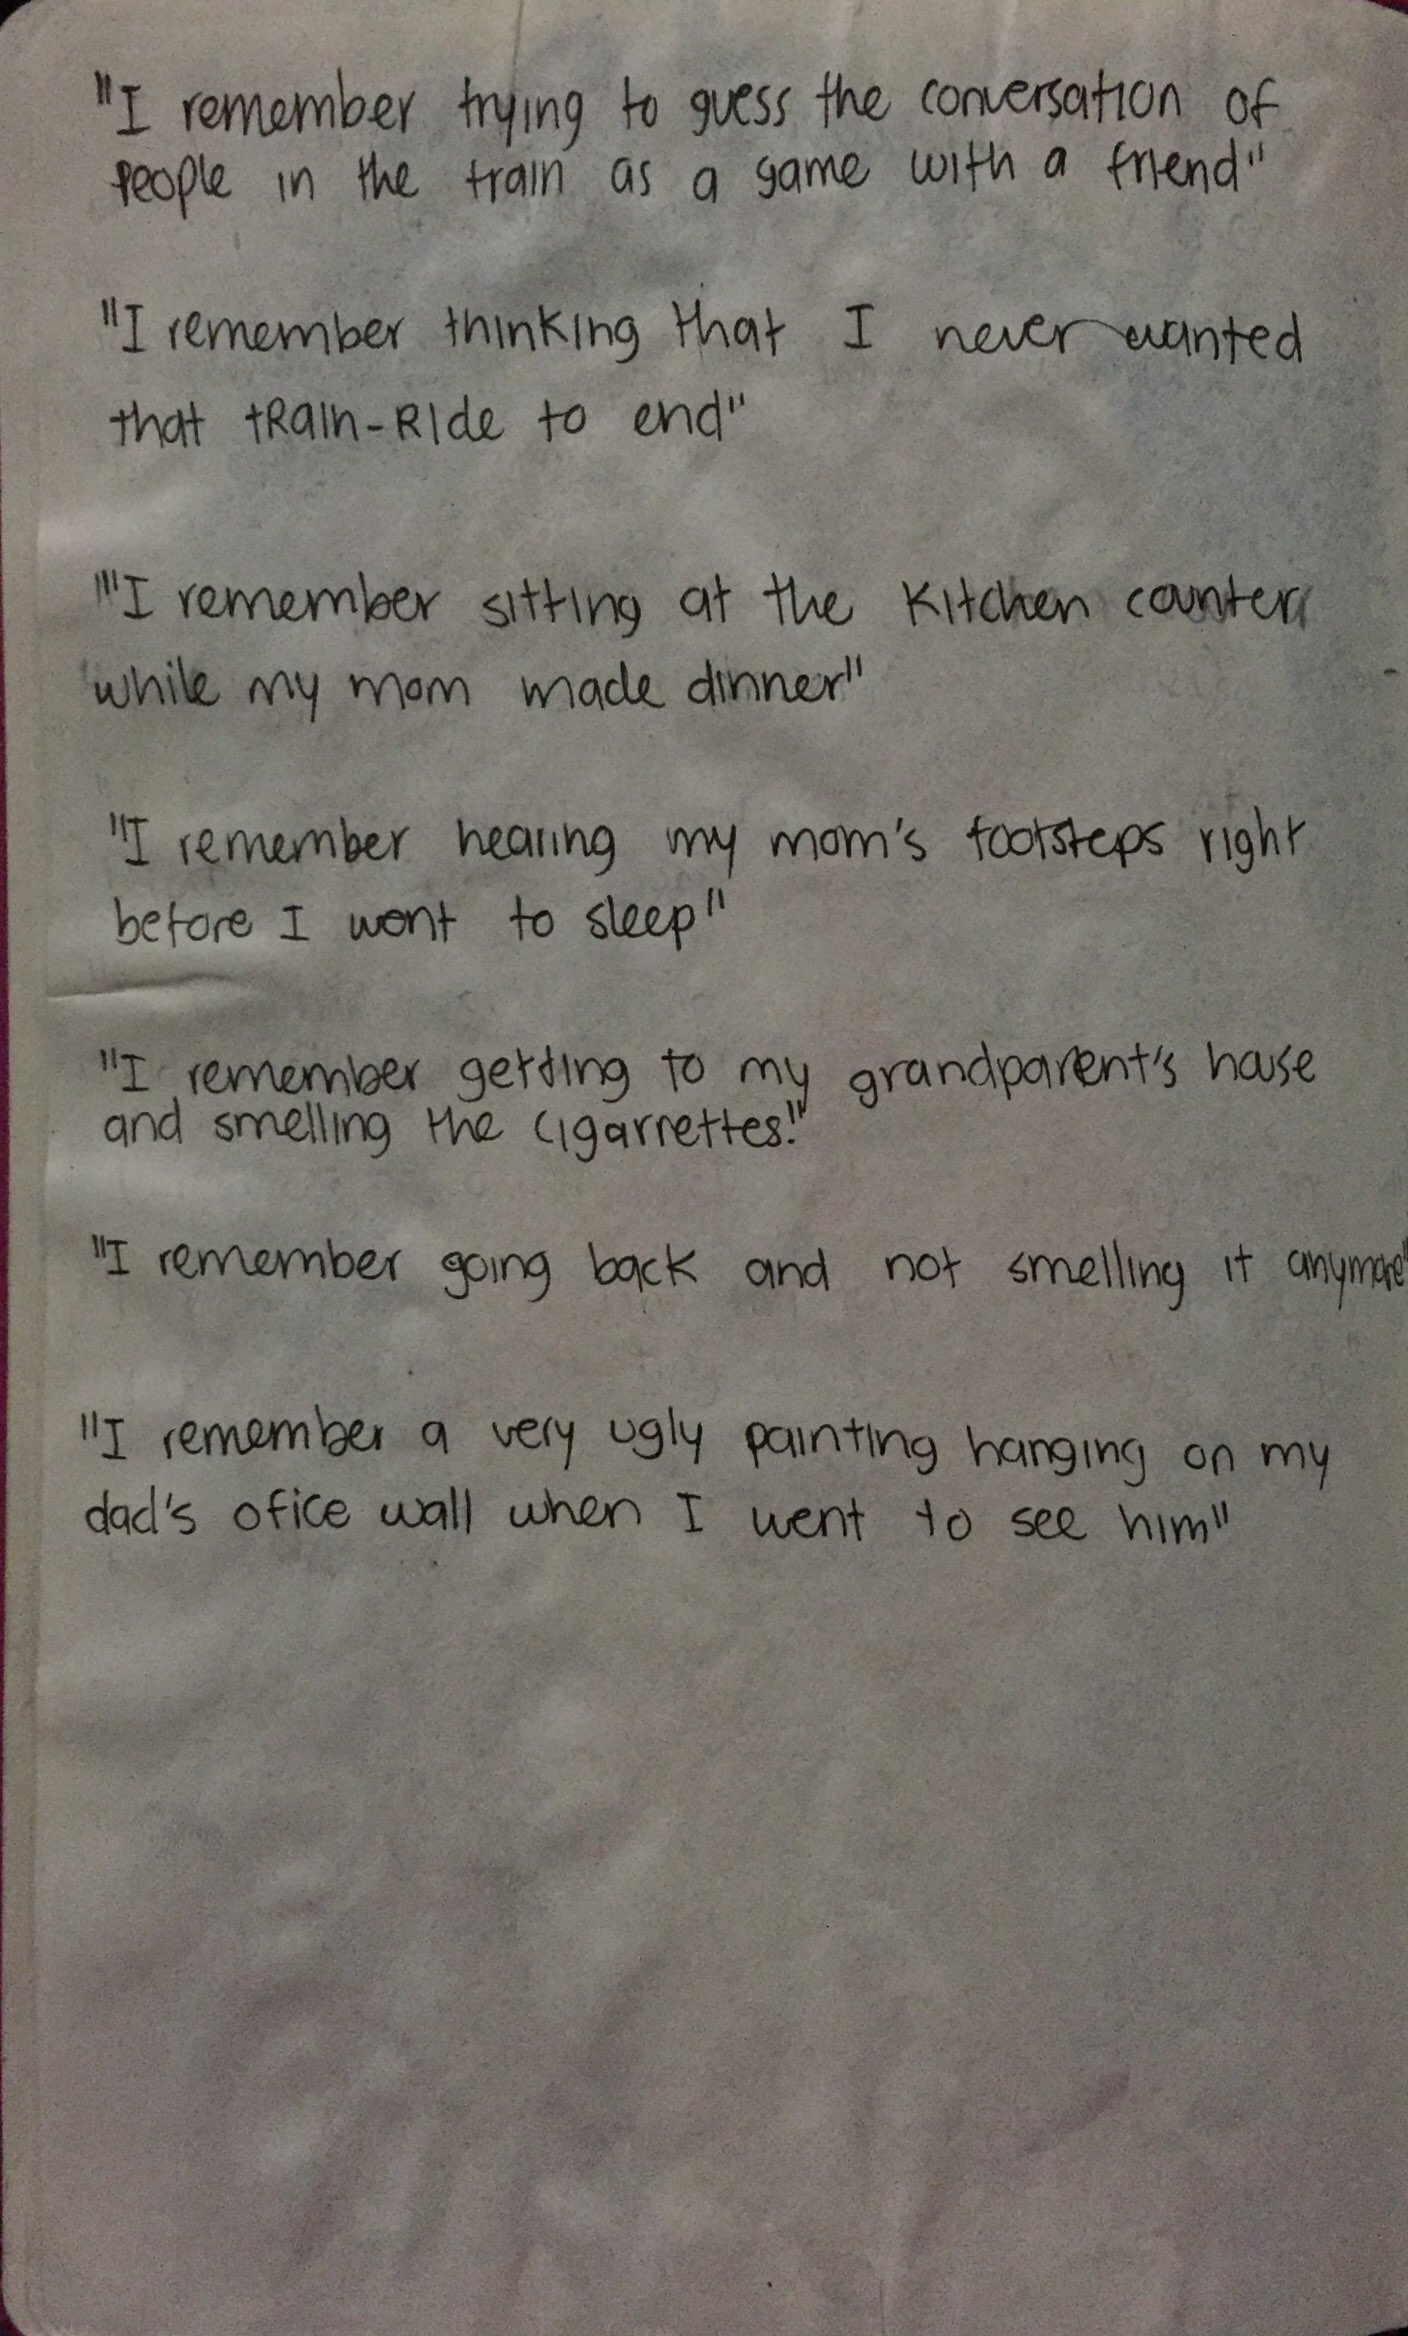 "I remember trying to guess the conversation of
people in the train as a game with a friend"
"I remember thinking that I never wanted
that tRain-RIde to end"
"I remember sitting at the Kitchen counter
while my mom made dinner"
"I remember hearing my mom's footsteps right
before I went to sleep"
"I remember getting to my grandparent's house
and smelling the cigarrettes."
"I remember going back and not smelling it anymore"
"I remember a very ugly painting hanging on my
dad's ofice wall when I went to see him"